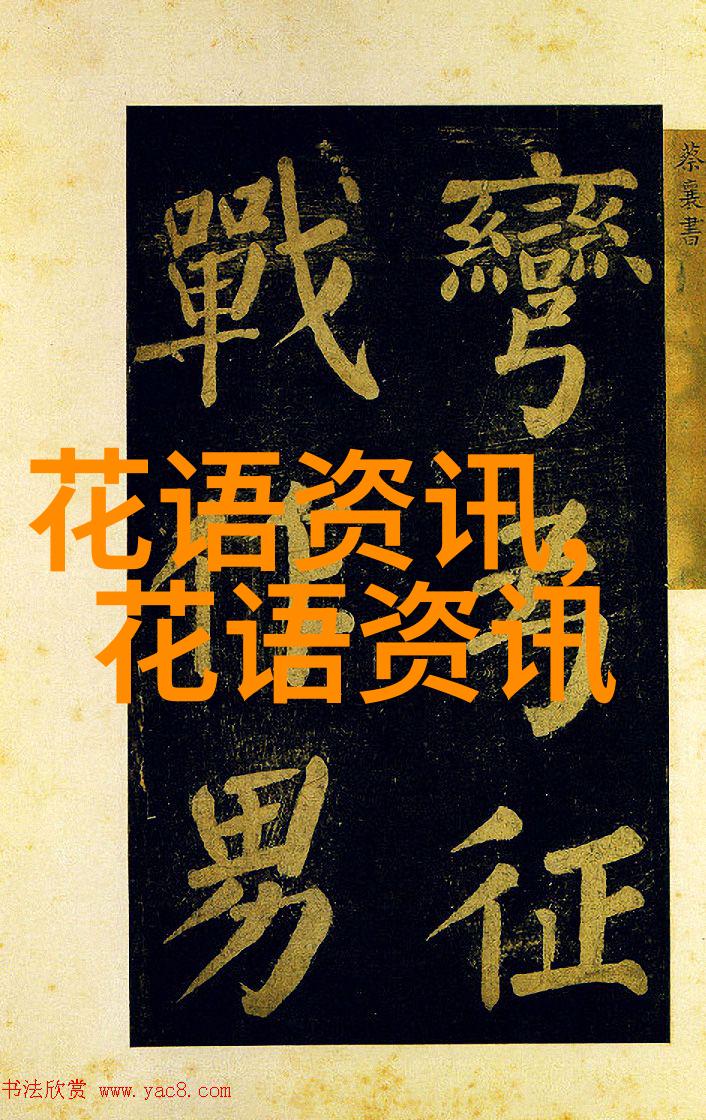 蔡襄書
彎弓征
戰作男
花语资讯,
花语资讯
书法欣赏 www.yac8.com